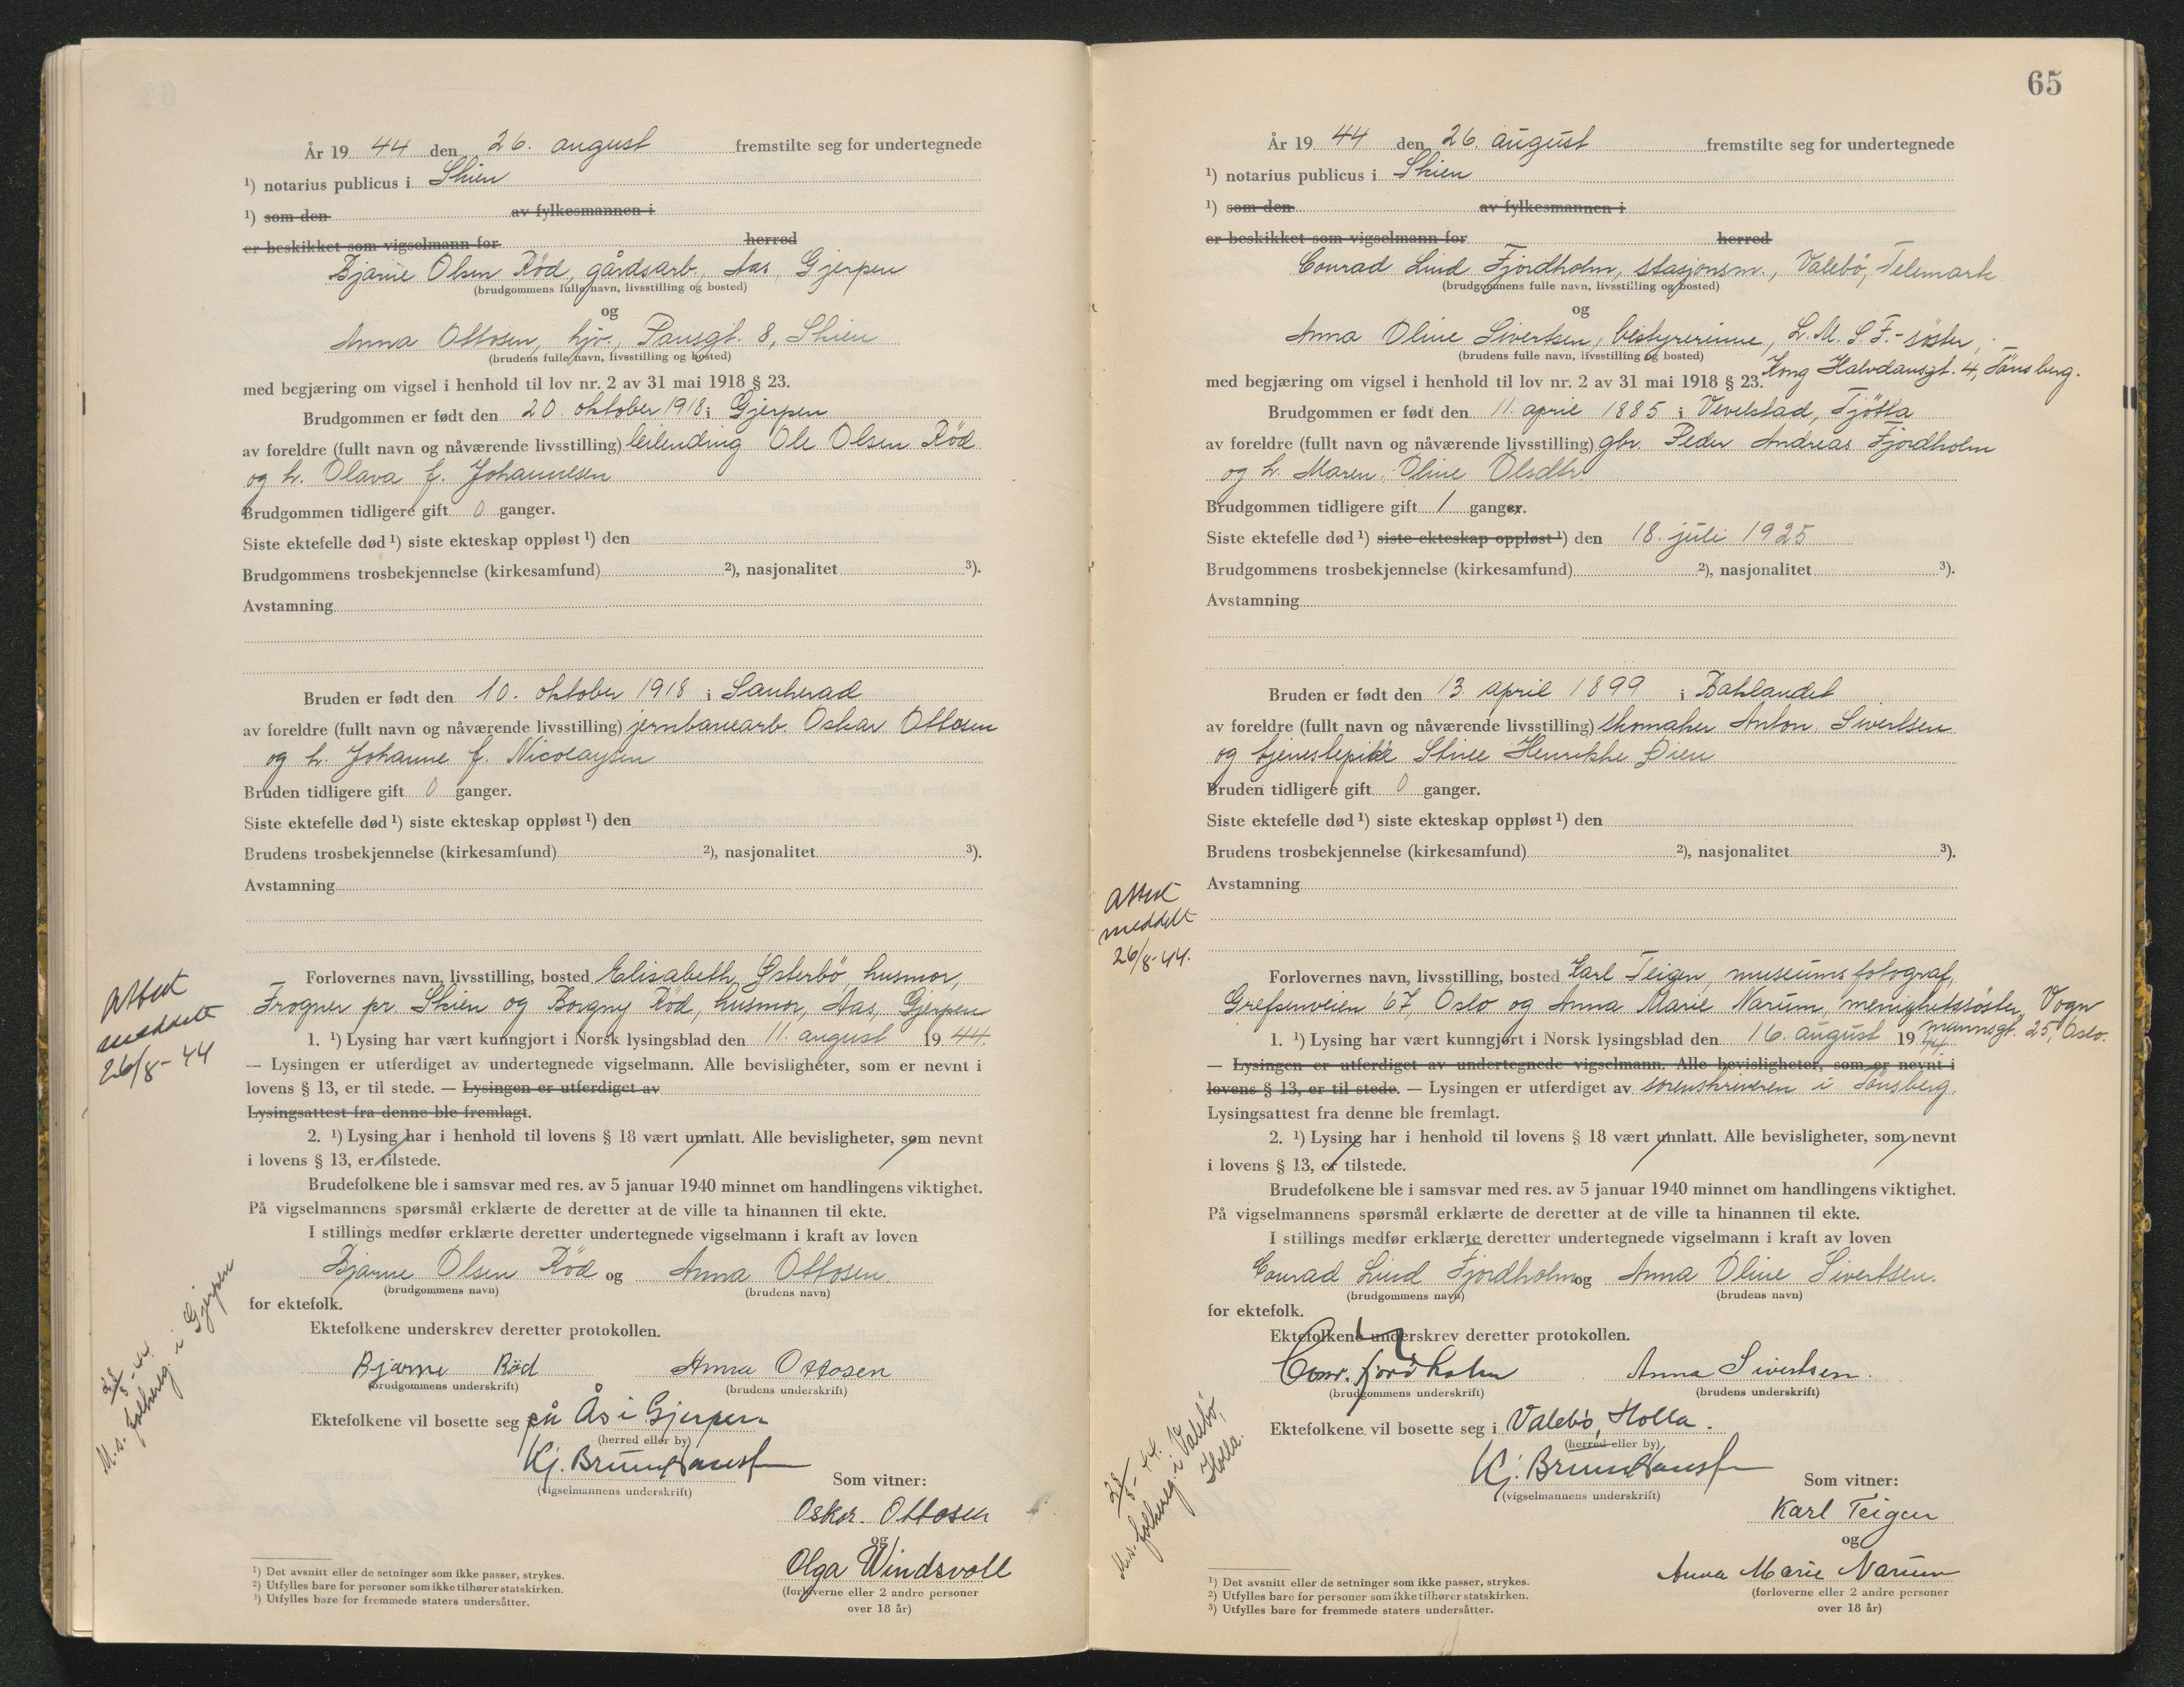 År 19 44 den 26. august fremstilte seg for undertegnede
¹) notarius publicus i Skien
¹) som den av fylkesmannen i
er beskikket som vigselmann for herred
Bjarne Olsen Röd, gårdsarb., Aas, Gjerpen
(brudgommens fulle navn, livsstilling og bosted)
og
Anna Ottosen, hjv., Pausgt. 8, Skien
(brudens fulle navn, livsstilling og bosted)
med begjæring om vigsel i henhold til lov nr. 2 av 31 mai 1918 § 23.
Brudgommen er født den 20. oktober 1918 i Gjerpen
av foreldre (fullt navn og nåværende livsstilling) leilending Ole Olsen Röd
og h. Olava f. Johannesen
Brudgommen tidligere gift 0 ganger.
Siste ektefelle død ¹) siste ekteskap oppløst ¹) den
Brudgommens trosbekjennelse (kirkesamfund) ²), nasjonalitet ³).
Avstamning
Bruden er født den 10. oktober 1918 i Sauherad
av foreldre (fullt navn og nåværende livsstilling) jernbanearb. Oskar Ottosen
og h. Johanne f. Nicolaysen
Bruden tidligere gift 0 ganger.
Siste ektefelle død ¹) siste ekteskap oppløst ¹) den
Brudens trosbekjennelse (kirkesamfund) ²), nasjonalitet ³).
Avstamning
Attest
meddelt
26/8-44
Forlovernes navn, livsstilling, bosted Elisabeth Østerbö, husmor,
Frogner pr. Skien og Borgny Röd, husmor, Aas, Gjerpen
1. ¹) Lysing har vært kunngjort i Norsk lysingsblad den 11. august 19 44.
— Lysingen er utferdiget av undertegnede vigselmann. Alle bevisligheter, som er nevnt i
lovens § 13, er til stede. — Lysingen er utferdiget av
Lysingsattest fra denne ble fremlagt.
2. ¹) Lysing har i henhold til lovens § 18 vært unnlatt. Alle bevisligheter, som nevnt
i lovens § 13, er tilstede.
Brudefolkene ble i samsvar med res. av 5 januar 1940 minnet om handlingens viktighet.
På vigselmannens spørsmål erklærte de deretter at de ville ta hinannen til ekte.
I stillings medfør erklærte deretter undertegnede vigselmann i kraft av loven
Bjarne Olsen Röd og Anna Ottosen
(brudgommens navn) (brudens navn)
for ektefolk.
Ektefolkene underskrev deretter protokollen.
Bjarne Röd Anna Ottosen
(brudgommens underskrift) (brudens underskrift)
28/8-44.
M.s. folkereg. i Gjerpen
Ektefolkene vil bosette seg på Ås i Gjerpen
(herred eller by)
Kj. Bruun Hansen
(vigselmannens underskrift)
Som vitner:
Oskar Ottosen
og
Olga Windsvoll
(forloverne eller 2 andre personer
over 18 år)
¹) Det avsnitt eller de setninger som ikke passer, strykes.
²) Utfylles bare for personer som ikke tilhører statskirken.
³) Utfylles bare for fremmede staters undersåtter.
65
År 19 44 den 26. august fremstilte seg for undertegnede
¹) notarius publicus i Skien
¹) som den av fylkesmannen i
er beskikket som vigselmann for herred
Conrad Lind Fjordholm, stasjonsm., Valebö, Telemark
(brudgommens fulle navn, livsstilling og bosted)
og
Anna Oline Sivertsen, bestyrerinne, L.M.S.F.-söster,
(brudens fulle navn, livsstilling og bosted)
Kong Halvdansgt. 4, Tönsberg.
med begjæring om vigsel i henhold til lov nr. 2 av 31 mai 1918 § 23.
Brudgommen er født den 11. april 1885 i Vevelstad, Tjötta
av foreldre (fullt navn og nåværende livsstilling) gbr. Peder Andreas Fjordholm
og h. Maren Oline Olsdtr
Brudgommen tidligere gift 1 ganger.
Siste ektefelle død ¹) siste ekteskap oppløst ¹) den 18. juli 1925
Brudgommens trosbekjennelse (kirkesamfund) ²), nasjonalitet ³).
Avstamning
Bruden er født den 13. april 1899 i Baklandet
av foreldre (fullt navn og nåværende livsstilling) skomaker Anton Sivertsen
og tjenestepike Henrikke Öien
Bruden tidligere gift 0 ganger.
Siste ektefelle død ¹) siste ekteskap oppløst ¹) den
Brudens trosbekjennelse (kirkesamfund) ²), nasjonalitet ³).
Avstamning
Attest
meddelt
26/8-44.
Forlovernes navn, livsstilling, bosted Karl Teigen, museumsfotograf,
Grefsenveien 67, Oslo og Anna Marie Narum, menighetssöster, Vogn
mannsgt. 25, Oslo.
1. ¹) Lysing har vært kunngjort i Norsk lysingsblad den 16. august 19 44.
— Lysingen er utferdiget av undertegnede vigselmann. Alle bevisligheter, som er nevnt i
lovens § 13, er til stede. — Lysingen er utferdiget av sorenskriveren i Tönsberg.
Lysingsattest fra denne ble fremlagt.
2. ¹) Lysing har i henhold til lovens § 18 vært unnlatt. Alle bevisligheter, som nevnt
i lovens § 13, er tilstede.
Brudefolkene ble i samsvar med res. av 5 januar 1940 minnet om handlingens viktighet.
På vigselmannens spørsmål erklærte de deretter at de ville ta hinannen til ekte.
I stillings medfør erklærte deretter undertegnede vigselmann i kraft av loven
Conrad Lind Fjordholm og Anna Oline Sivertsen.
(brudgommens navn) (brudens navn)
for ektefolk.
Ektefolkene underskrev deretter protokollen.
Conr. Fjordholm Anna Sivertsen.
(brudgommens underskrift) (brudens underskrift)
28/8-44.
M.s. folkereg. i Valebö,
Holla.
Ektefolkene vil bosette seg i Valebö, Holla.
(herred eller by)
Kj. Bruun Hansen
(vigselmannens underskrift)
Som vitner:
Karl Teigen
og
Anna Marie Narum
(forloverne eller 2 andre personer
over 18 år)
¹) Det avsnitt eller de setninger som ikke passer, strykes.
²) Utfylles bare for personer som ikke tilhører statskirken.
³) Utfylles bare for fremmede staters undersåtter.